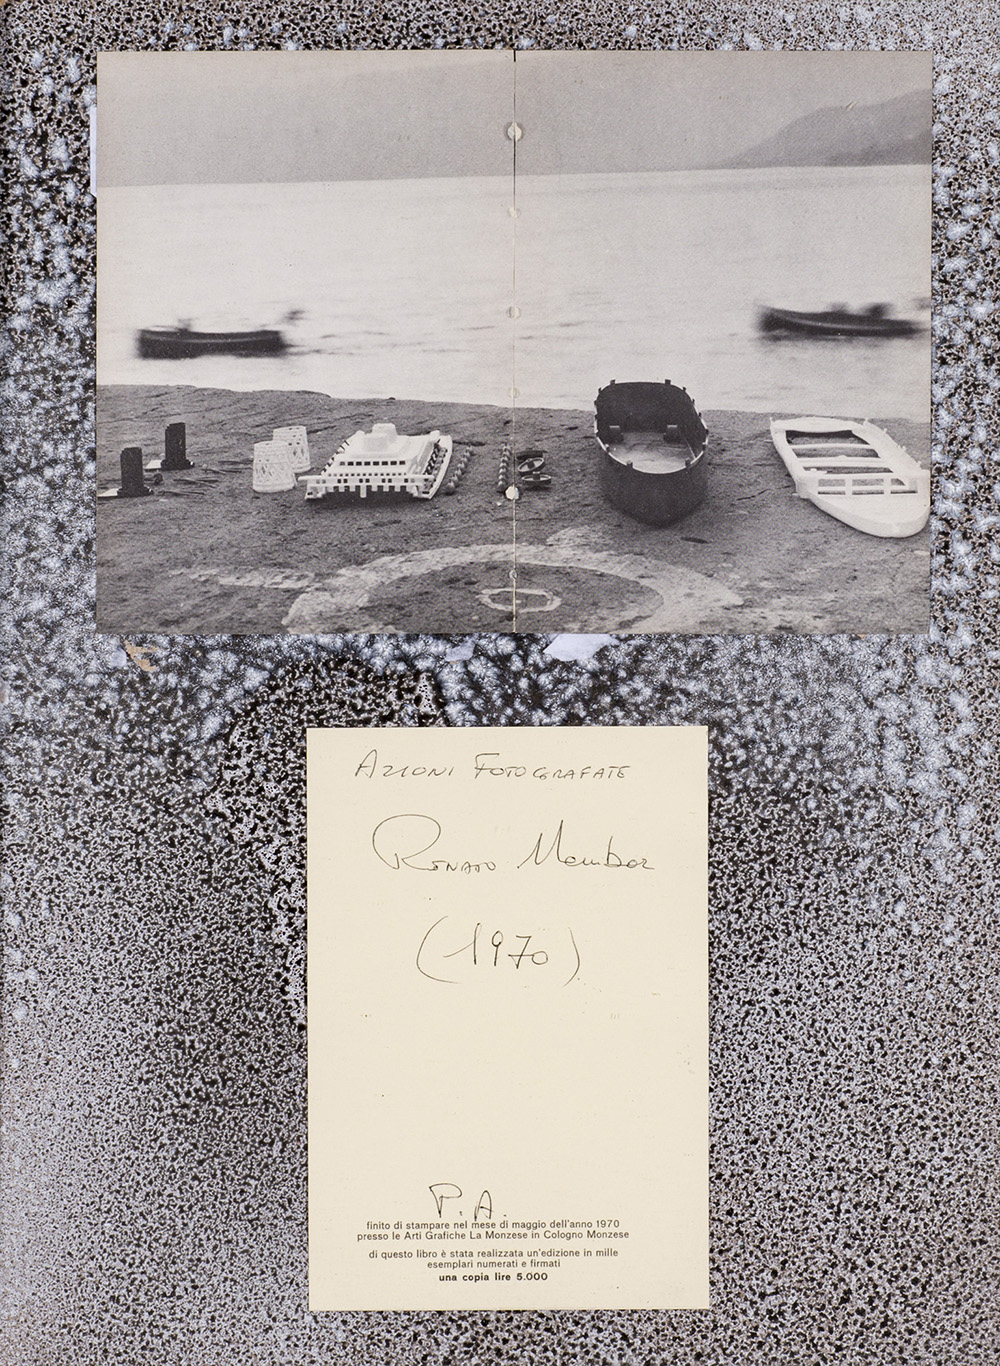 AZIONI FOTOGRAFATE
RENATO Mambor
(1970)
P.A.
finito di stampare nel mese di maggio dell'anno 1970
presso le Arti Grafiche La Monzese in Cologno Monzese
di questo libro è stata realizzata un'edizione in mille
esemplari numerati e firmati
una copia lire 5.000